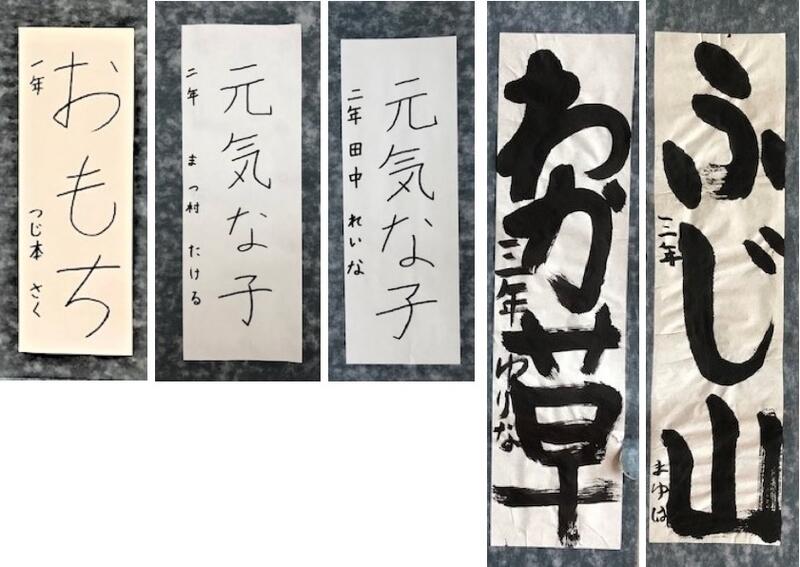 おもち
一年 つじ本 さく
元気な子
二年 まつ村 たける
元気な子
二年 田中 れいな
わか草
三年 ゆりな
ふじ山
三年 まゆは